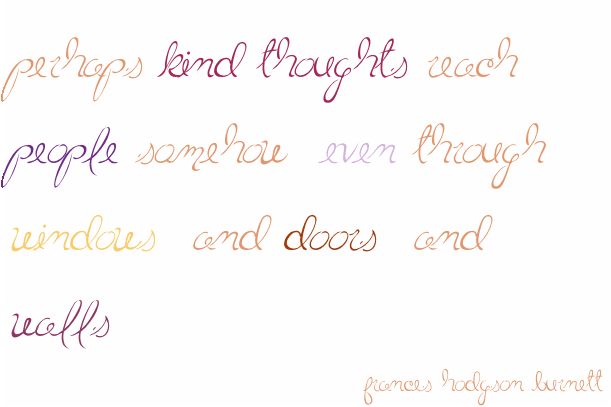 perhaps kind thoughts reach
people somehow even through
windows and doors and
walls
frances hodgson burnett